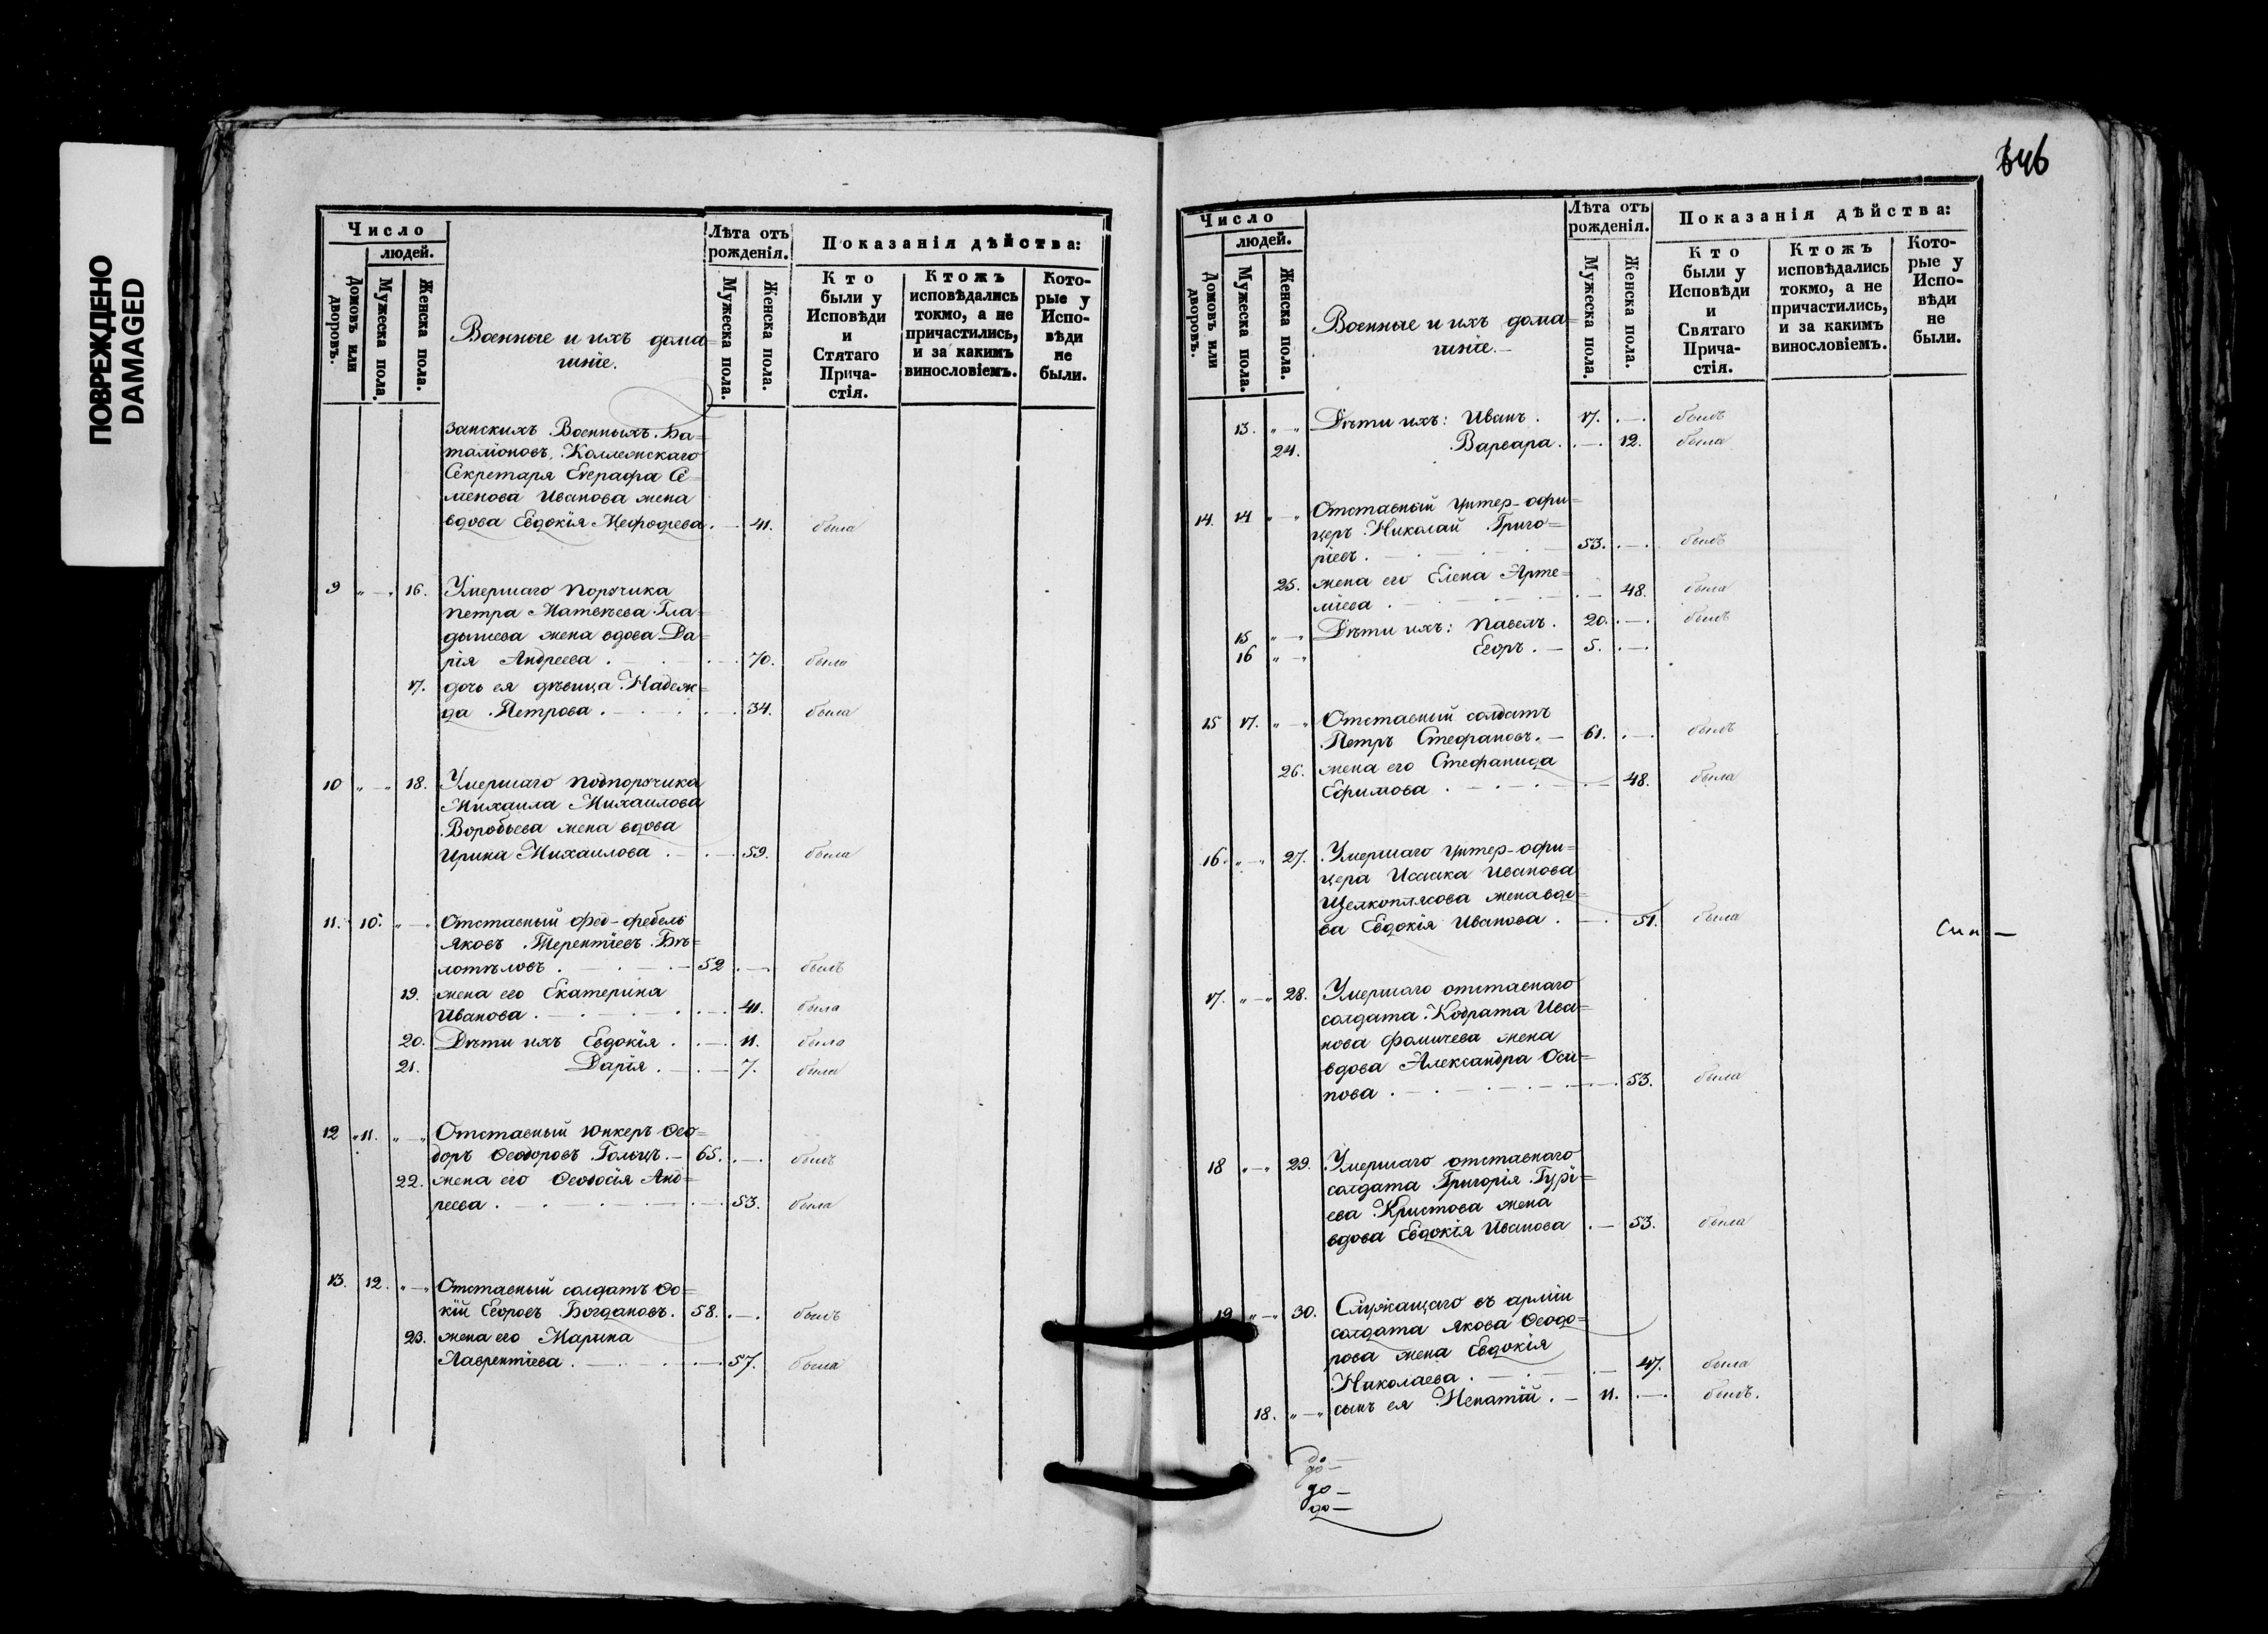 ПОВРЕЖДЕНО
DAMAGED
Число
людей.
Домовъ или дворовъ.
Мужеска пола.
Женска пола.
Военные и ихъ дома=
шніе.
Лѣта отъ рожденія.
Мужеска пола.
Женска пола.
Показанія дѣйства:
Кто были у Исповѣди и Стятаго Прича-стія.
Ктожъ исповѣдались токмо, а не причастились, и за какимъ винословіемъ.
Кото-рые у Испо-вѣди не были.
занскихъ Военныхъ Ба=
таліоновъ, Коллежскаго
Секретаря Евграфа Се=
менова Иванова жена
вдова Евдокія Меѳодіева . — 41. была
9 „ — „ 16. Умершаго Поручика
Петра Матвѣева Гла=
дышева жена вдова Да=
рія Андреева . — . — 70. была
17. дочь ея дѣвица Надеж=
да Петрова . — . — 34. была
10 „ — „ 18. Умершаго Подпоручика
Михаила Михаилова
Воробьева жена вдова
Ирина Михаилова . — . — 59. была
11. 10. „ — Отставный фед-фебель
Яковъ Терентіевъ Бѣ=
лотѣловъ . — . — 52 . — . былъ
19. жена его Екатерина
Иванова . — . — . — 41. была
20. Дѣти ихъ Евдокія . . — . 11. была
21. Дарія . — . — 7. была
12 „ 11. „ — „ Отставный Юнкеръ Ѳео=
доръ Ѳеодоровъ Гольцъ . — 65. . — . былъ
22. жена его Ѳеодосія Анд=
реева . — . — . — 53. была
13. 12. „ — „ Отставный солдатъ Ѳо=
кій Егоровъ Богдановъ. 58. . — . былъ
23. жена его Марина
Лаврентіева . — . — 57. была
646
Число
людей.
Домовъ или дворовъ.
Мужеска пола.
Женска пола.
Военные и ихъ дома=
шніе. —
Лѣта отъ рожденія.
Мужеска пола.
Женска пола.
Показанія дѣйства:
Кто были у Исповѣди и Святаго Прича-стія.
Ктожъ исповѣдались токмо, а не причастились, и за какимъ винословіемъ.
Кото-рые у Испо-вѣди не были.
13. „ — „ Дѣти ихъ: Иванъ . 17. . — . былъ
24. Варвара . . — . 12. была
14. 14 „ — „ Отставный Унтер-офи=
церъ Николай Григо=
ріевъ . — . — 53. . — . былъ
25. жена его Елена Арте=
міева . — . — . — 48. была
15 „ — „ Дѣти ихъ: Павелъ . 20. . — . былъ
16 „ — „ Егоръ . — 5. . — .
15 17. „ — „ Отставный солдатъ
Петръ Стефановъ. — 61. . — . былъ
26. жена его Стефанида
Ефимова . — . — . — 48. была
16. „ — „ 27. Умершаго Унтер-офи=
цера Исаака Иванова
Щелкоплясова жена вдо=
ва Евдокія Иванова . — . 51. была
17. „ — „ 28. Умершаго отставнаго
солдата Кодрата Ива=
нова Фомичева жена
вдова Александра Оси=
пова . — . — . — 53. была
18 „ — „ 29. Умершаго отставнаго
солдата Григорія Гурі=
ева Христова жена
вдова Евдокія Иванова . — 53. была
19 „ — „ 30. Служащаго въ арміи
солдата Якова Ѳеодо=
рова жена Евдокія
Николаева . — . — 47. была
18. „ — „ сынъ ея Игнатій . — 11. . — . былъ.
до —
до —
до —